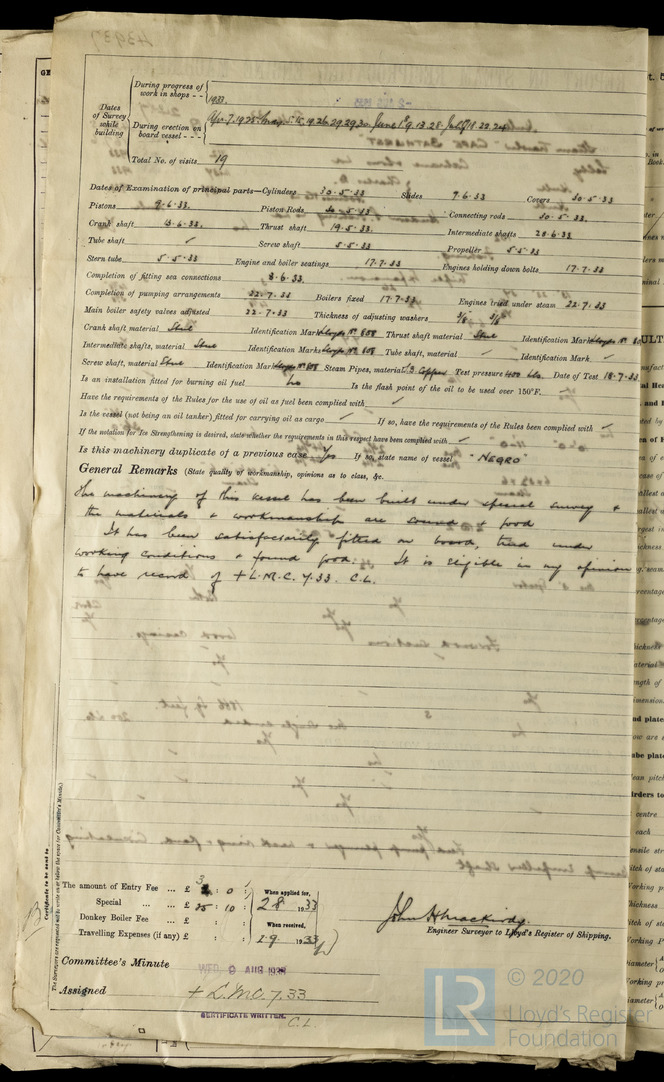 During progress of work in shops - -
1933.
Dates of Survey while building
During erection on board vessel - - -
Total No. of visits 19
Dates of Examination of principal parts—Cylinders 30.5.33 Slides 9.6.33 Covers 30.5.33
Pistons 9.6.33. Piston Rods 30.5.33 Connecting rods 30.5.33.
Crank shaft 13.6.33. Thrust shaft 19.5.33 Intermediate shafts 28.6.33
Tube shaft ✓ Screw shaft 5.5.33 Propeller 5.5.33
Stern tube 5.5.33 Engine and boiler seatings 17.7.33 Engines holding down bolts 17.7.33
Completion of fitting sea connections 8.6.33
Completion of pumping arrangements 22.7.33 Boilers fixed 17.7.33 Engines tried under steam 22.7.33
Main boiler safety valves adjusted 22.7.33 Thickness of adjusting washers 3/8 3/8
Crank shaft material Steel Identification Mark Lloyds No 808 Thrust shaft material Steel Identification Mark Lloyds No
Intermediate shafts, material Steel Identification Marks Lloyds No 808 Tube shaft, material ✓ Identification Mark ✓
Screw shaft, material Steel Identification Mark Lloyds No 808 Steam Pipes, material Copper Test pressure 400 lbs. Date of Test 18.7.33
Is an installation fitted for burning oil fuel No Is the flash point of the oil to be used over 150°F.
Have the requirements of the Rules for the use of oil as fuel been complied with ✓
Is the vessel (not being an oil tanker) fitted for carrying oil as cargo ✓ If so, have the requirements of the Rules been complied with ✓
If the notation for Ice Strengthening is desired, state whether the requirements in this respect have been complied with ✓
Is this machinery duplicate of a previous case Yes If so, state name of vessel "NEGRO"
General Remarks (State quality of workmanship, opinions as to class, &c.
The machinery of this vessel has been built under special survey +
the materials + workmanship are sound + good
It has been satisfactorily fitted on board, tried under
working conditions + found good. It is eligible in my opinion
to have record of + L.M.C. 7.33. C.L.
Certificate to be sent to
The Surveyors are requested not to write on or below the space for Committee's Minute.
The amount of Entry Fee ... £ 3 : 0 :
Special ... ... £ 25 : 10 :
Donkey Boiler Fee ... £ : :
Travelling Expenses (if any) £ : :
When applied for,
2.8 1933
When received,
1.9. 1933
John H Mackirdy.
Engineer Surveyor to Lloyd's Register of Shipping.
Committee's Minute WED. 9 AUG 1933
Assigned + L.M.C. 7.33
CERTIFICATE WRITTEN.
C.L.
LR © 2020
Lloyd's Register
Foundation